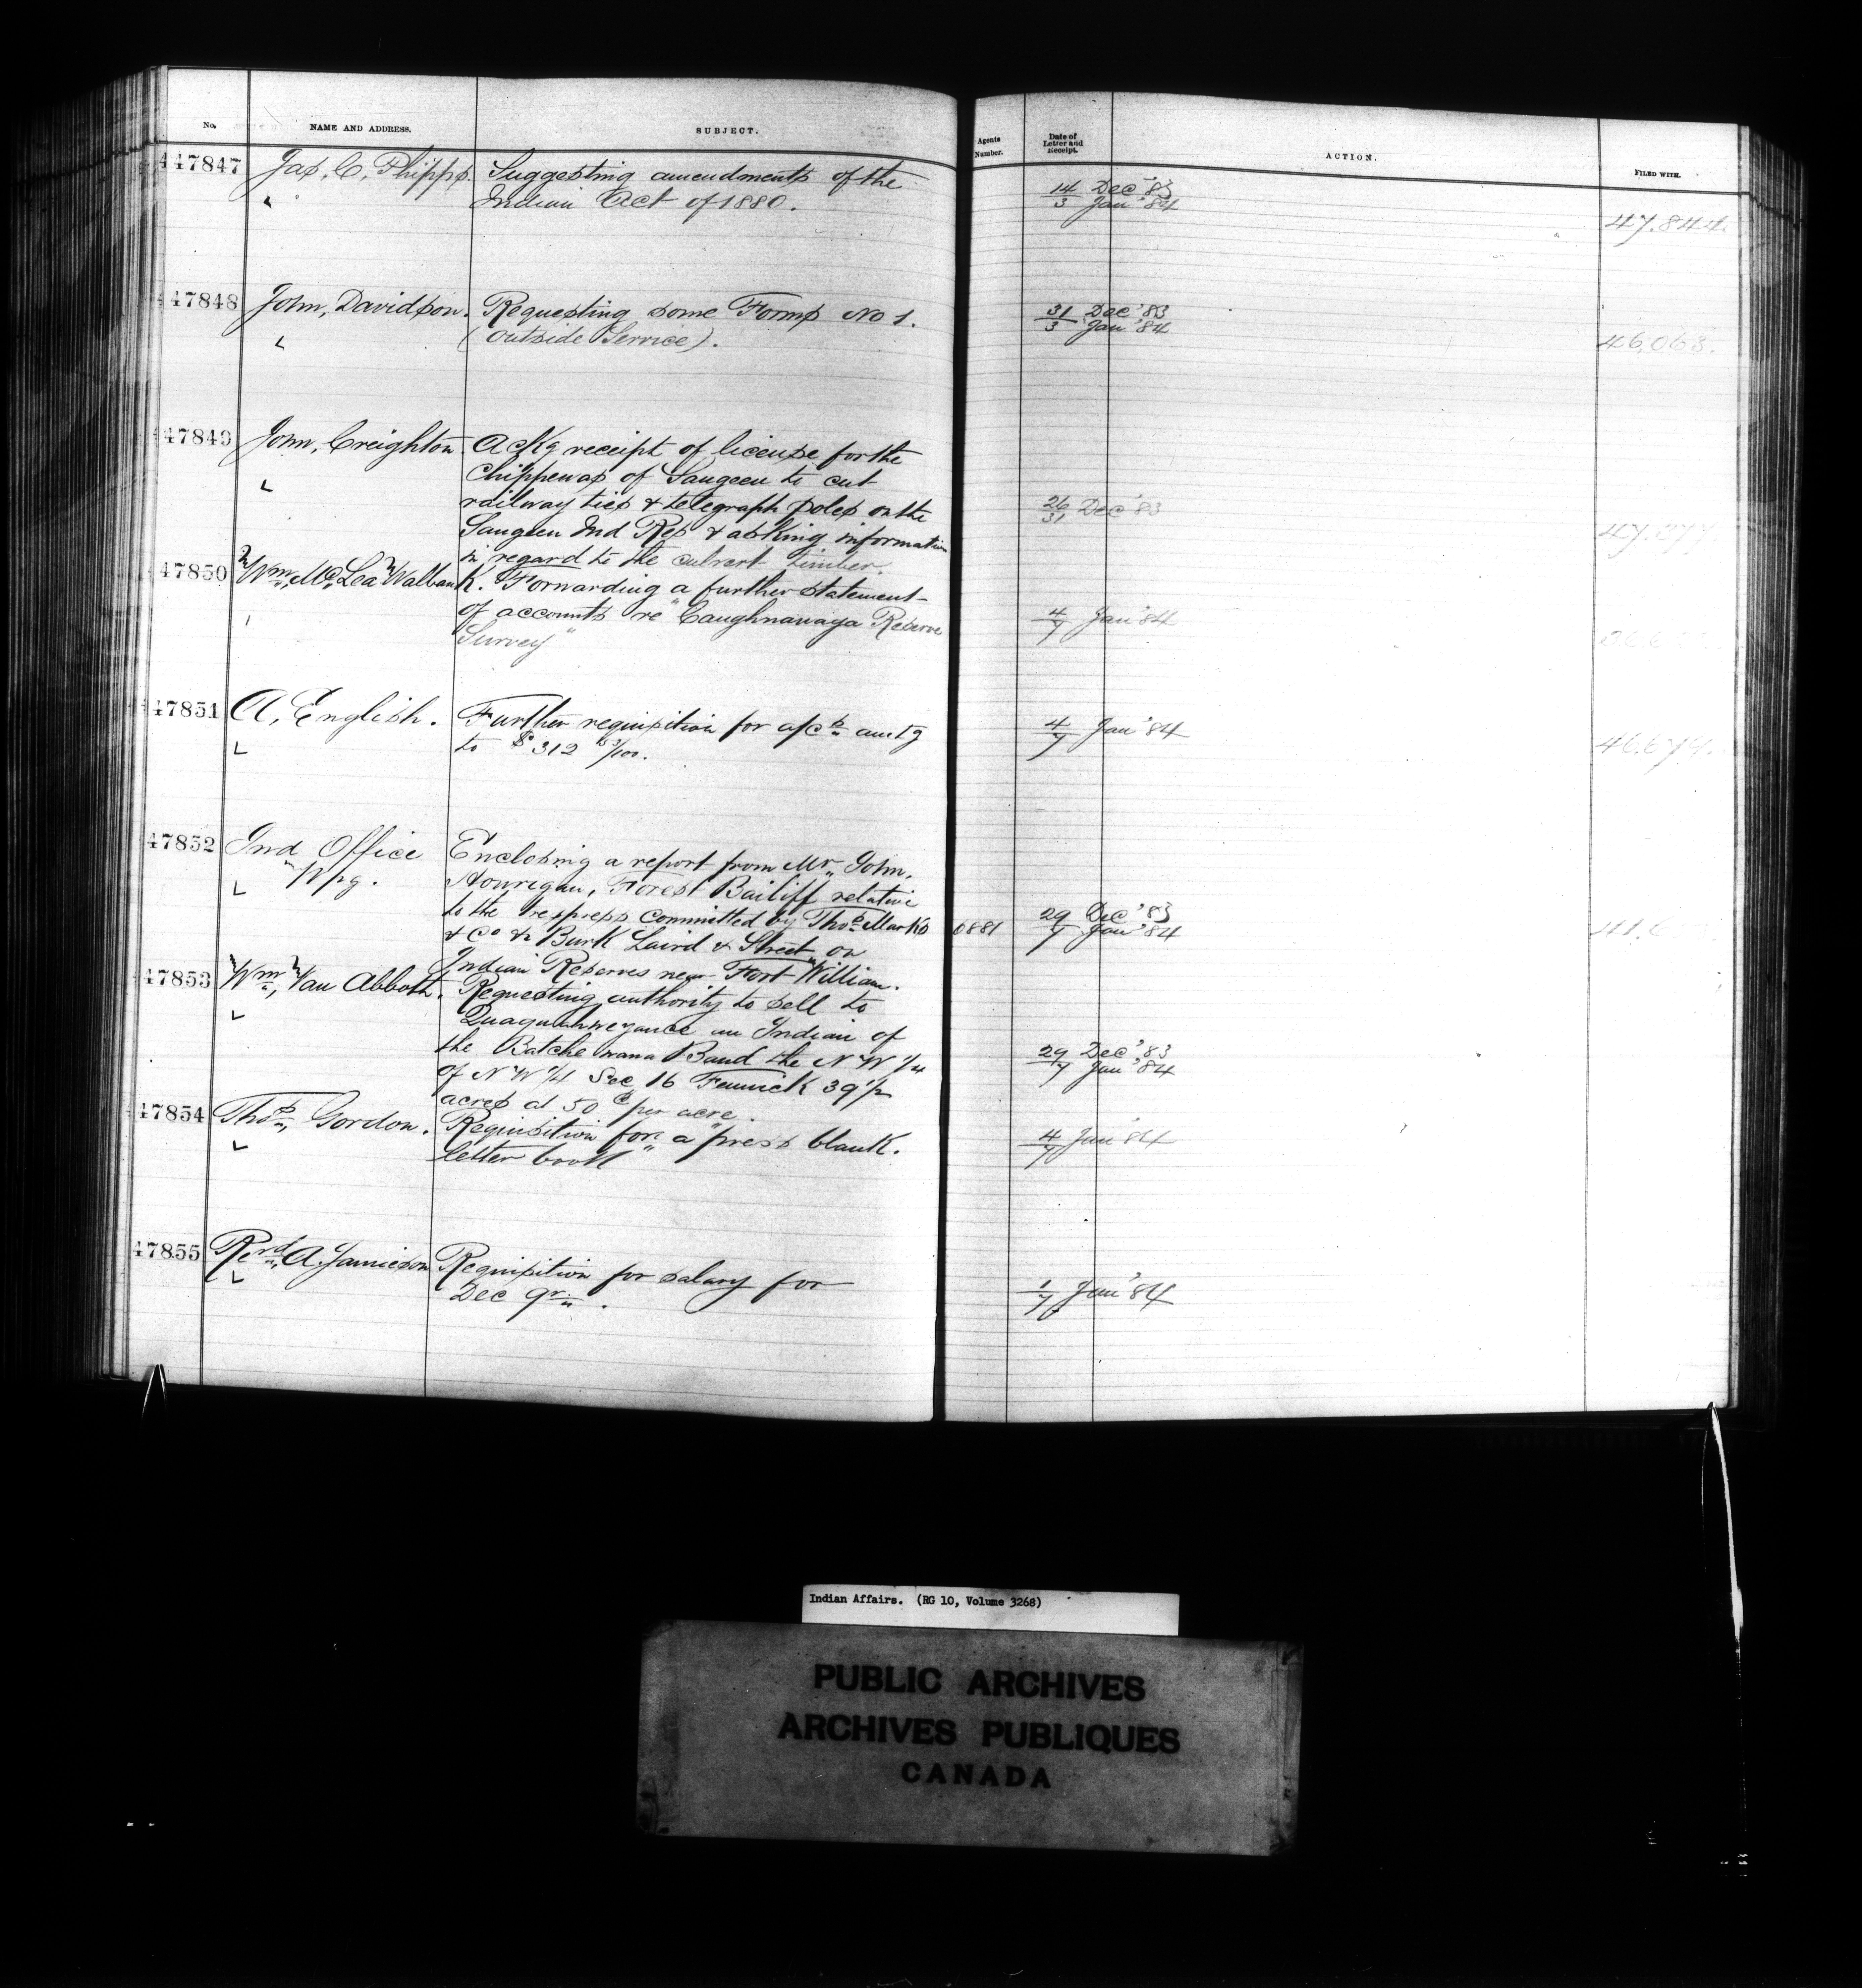 No. NAME AND ADDRESS. SUBJECT. Agents Number. Date of Letter and Receipt. ACTION. FILED WITH.
47847 Jas, C, Phipps. Suggesting amendments of the
Indian Act of 1880. 14/3 Dec '83 Jan '84 47.844.
47848 John, Davidson. Requesting some Forms No 1.
(outside Service). 31/3 Dec '83 Jan '84 46,063.
47849 John, Creighton Ackg receipt of license for the
Chippewas of Saugeen to cut
railway ties & telegraph poles on the 26/31 Dec '83
Saugeen Ind Res & asking information
in regard to the culvert timber.
47850 Wm, Mc, Lea Walbank. Forwarding a further statement
of accounts re "Caughnawaga Reserve 4/7 Jan '84
Survey"
47851 A, English. Further requisition for a/cs amtg 4/7 Jan '84
to $312 /100. 46.679.
47852 Ind Office Enclosing a report from Mr John,
Wpg. Hourigan, Forest Bailiff relative
to the trespass committed by Thos Marks 6881 29/7 Dec '83 Jan '84
& Co & Burk Laird & Street on
Indian Reserves near Fort William.
47853 Wm, Van Abbott. Requesting authority to sell to
an Indian of
the Batchewana Band the N W 1/4 29/7 Dec '83 Jan '84
of N W 1/4 Sec 16 Fenwick 39 1/2
acres at 50 c per acre.
47854 Thos, Gordon. Requisition for a "press blank.
letter book" 4/7 Jan '84
47855 Revd, A. Jamieson Requisition for salary for
Dec qr. 1/7 Jan '84
Indian Affairs. (RG 10, Volume 3268)
PUBLIC ARCHIVES
ARCHIVES PUBLIQUES
CANADA